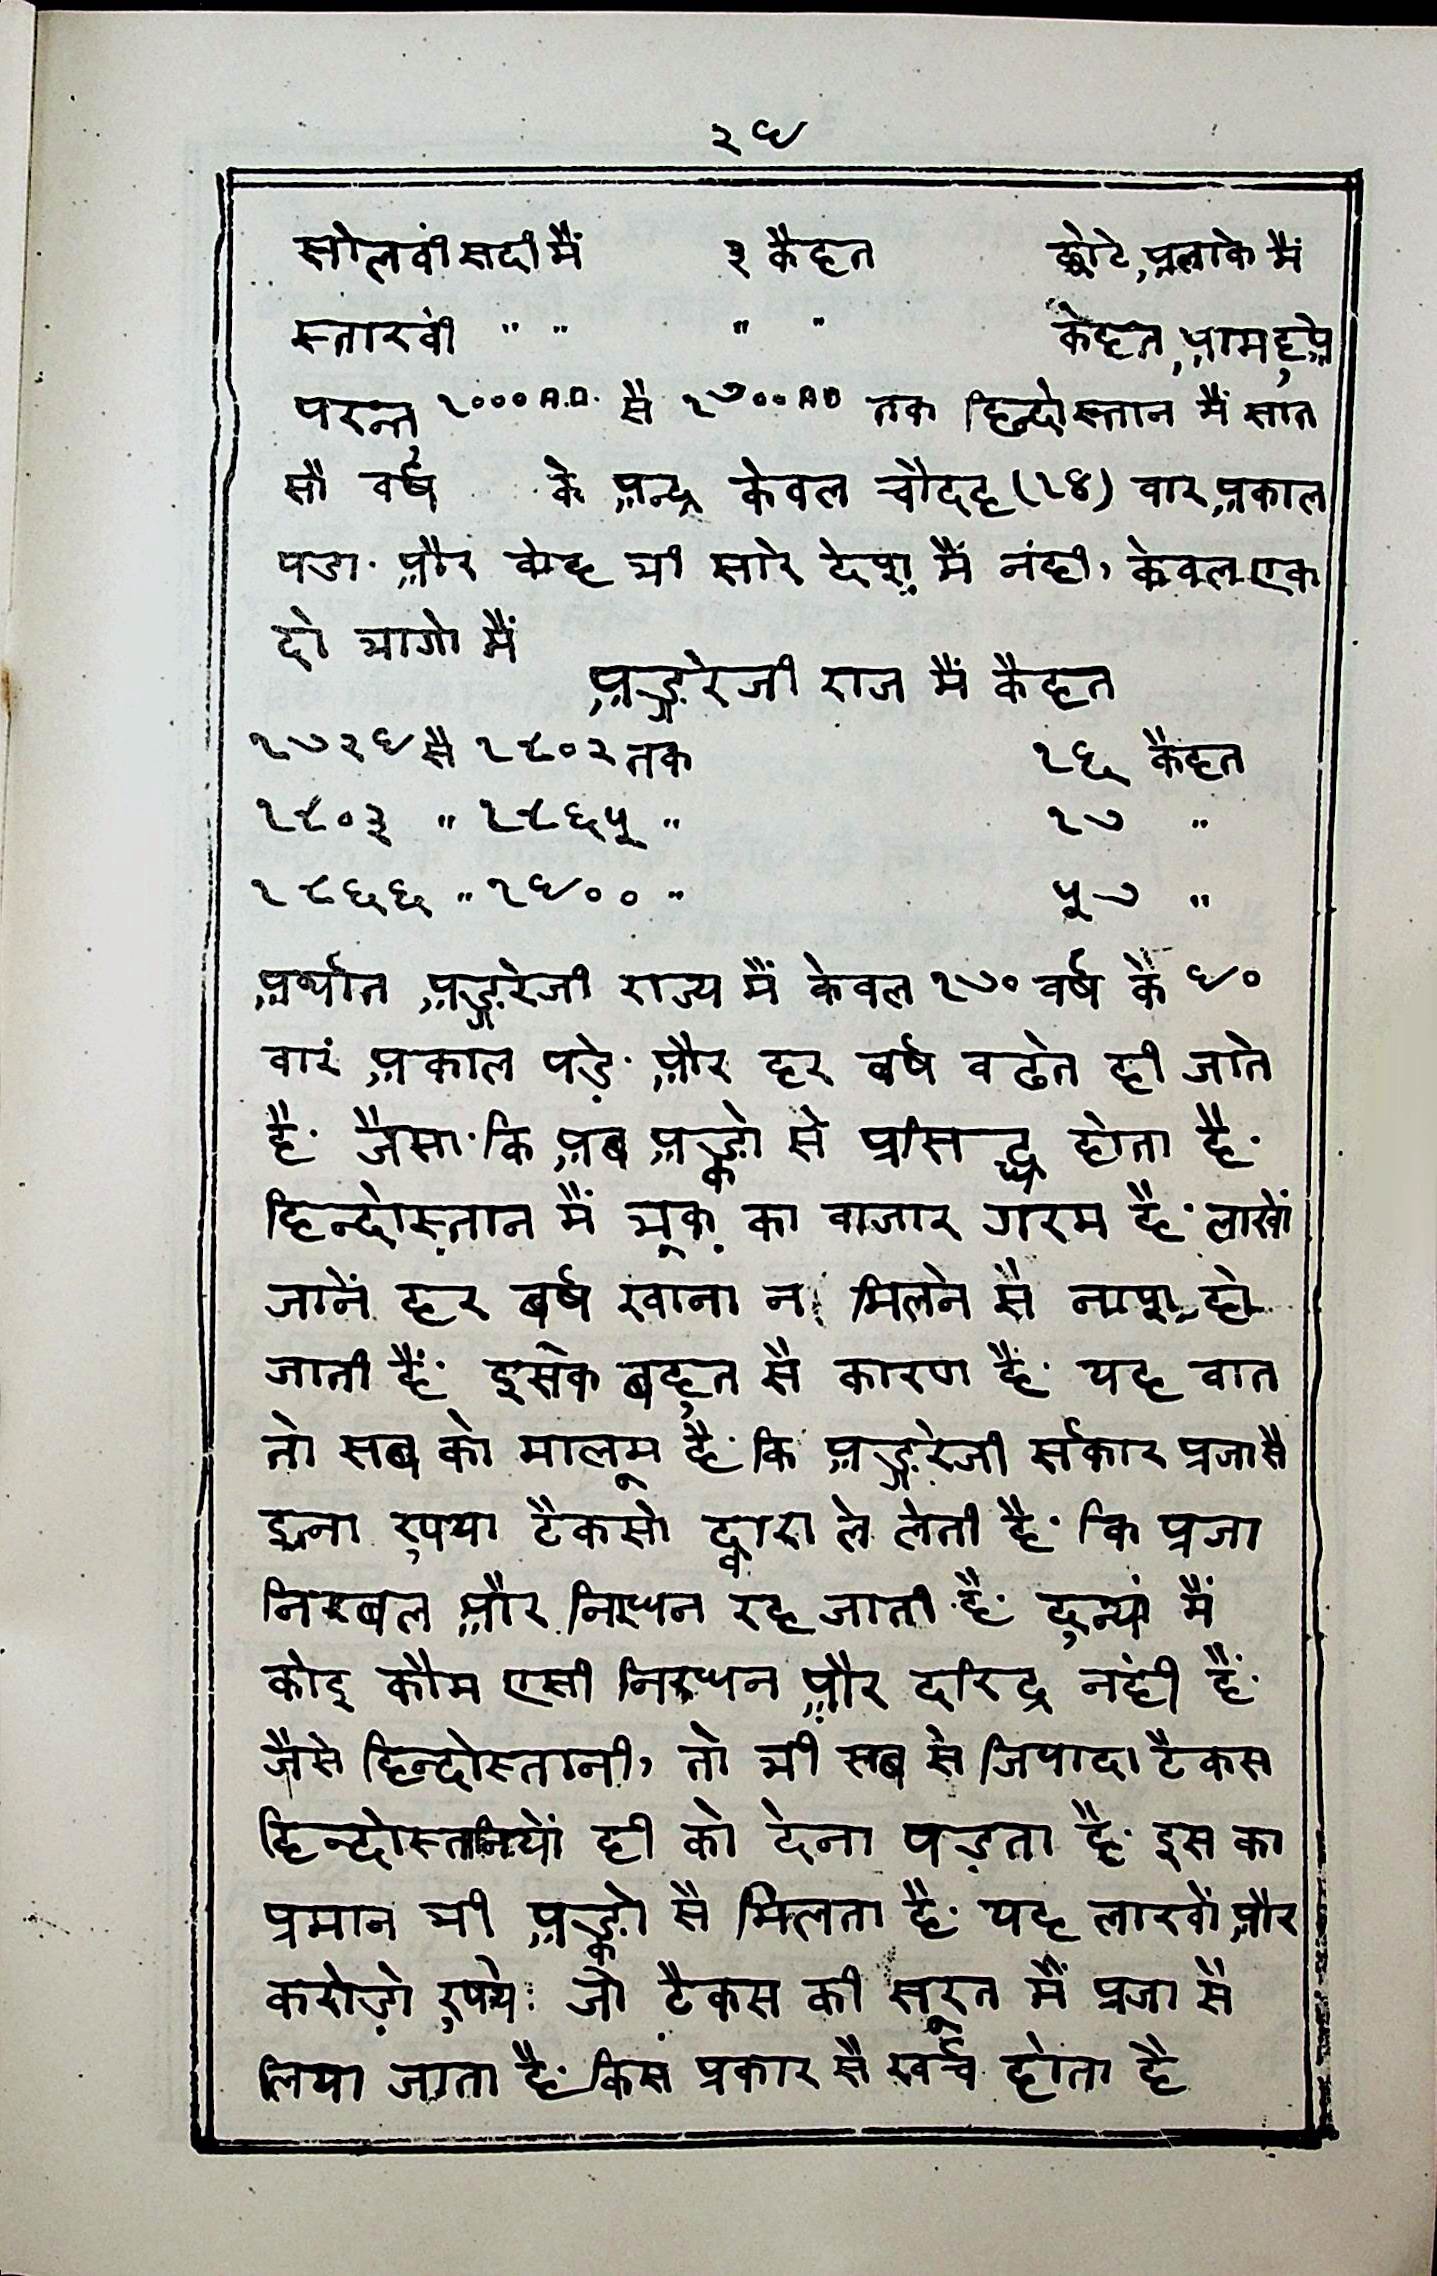 २९
सोलवीं सदी मैं ३ कैहत छोटे अलाके मैं
स्तारवीं " " " " केहत आम हुऐ
परन्तु १००० A.D. सै १७०० AD तक हिन्दोस्तान मैं सात
सौ वर्ष के अन्द्र केवल चौदह (१४) वार अकाल
पडा. और वोह भी सारे देश मैं नंही, केवल एक
दो भागो मैं
अङ्गरेजी राज मैं कैहत
१७२९ सै १८०२ तक १६ कैहत
१८०३ " १८६५ " १७ "
१८६६ " १९०० " ५७ "
अर्थात अङ्गरेजी राज्य मैं केवल १७० वर्ष कै ९०
वारं अकाल पड़े. और हर बर्ष वढते ही जाते
है. जैसा. कि अब अङ्को से प्रसिद्ध होता है.
हिन्दोस्तान मैं भूक का वाजार गरम है. लाखों
जानें हर बर्ष खाना न मिलने सै नाश हो
जाती हैं. इसके बहुत सै कारण हैं. यह वात
तो सब को मालूम है. कि अङ्गरेजी सर्कार प्रजा सै
इतना रुपया टैकसो द्वारा ले लेती है. कि प्रजा
निरबल और निरधन रह जाती है. दुन्यां मैं
कोइ कौम एसी निरधन और दरिद्र नंही हैं.
जैसे हिन्दोस्तानी, तो भी सब से जियादा टैकस
हिन्दोस्तानियों ही को देना पड़ता है. इस का
प्रमान भी अङ्को सै मिलता है. यह लाखों और
करोड़ो रुपये. जो टैकस की सूरत मैं प्रजा सै
लिया जाता है. किस प्रकार सै खर्च होता है